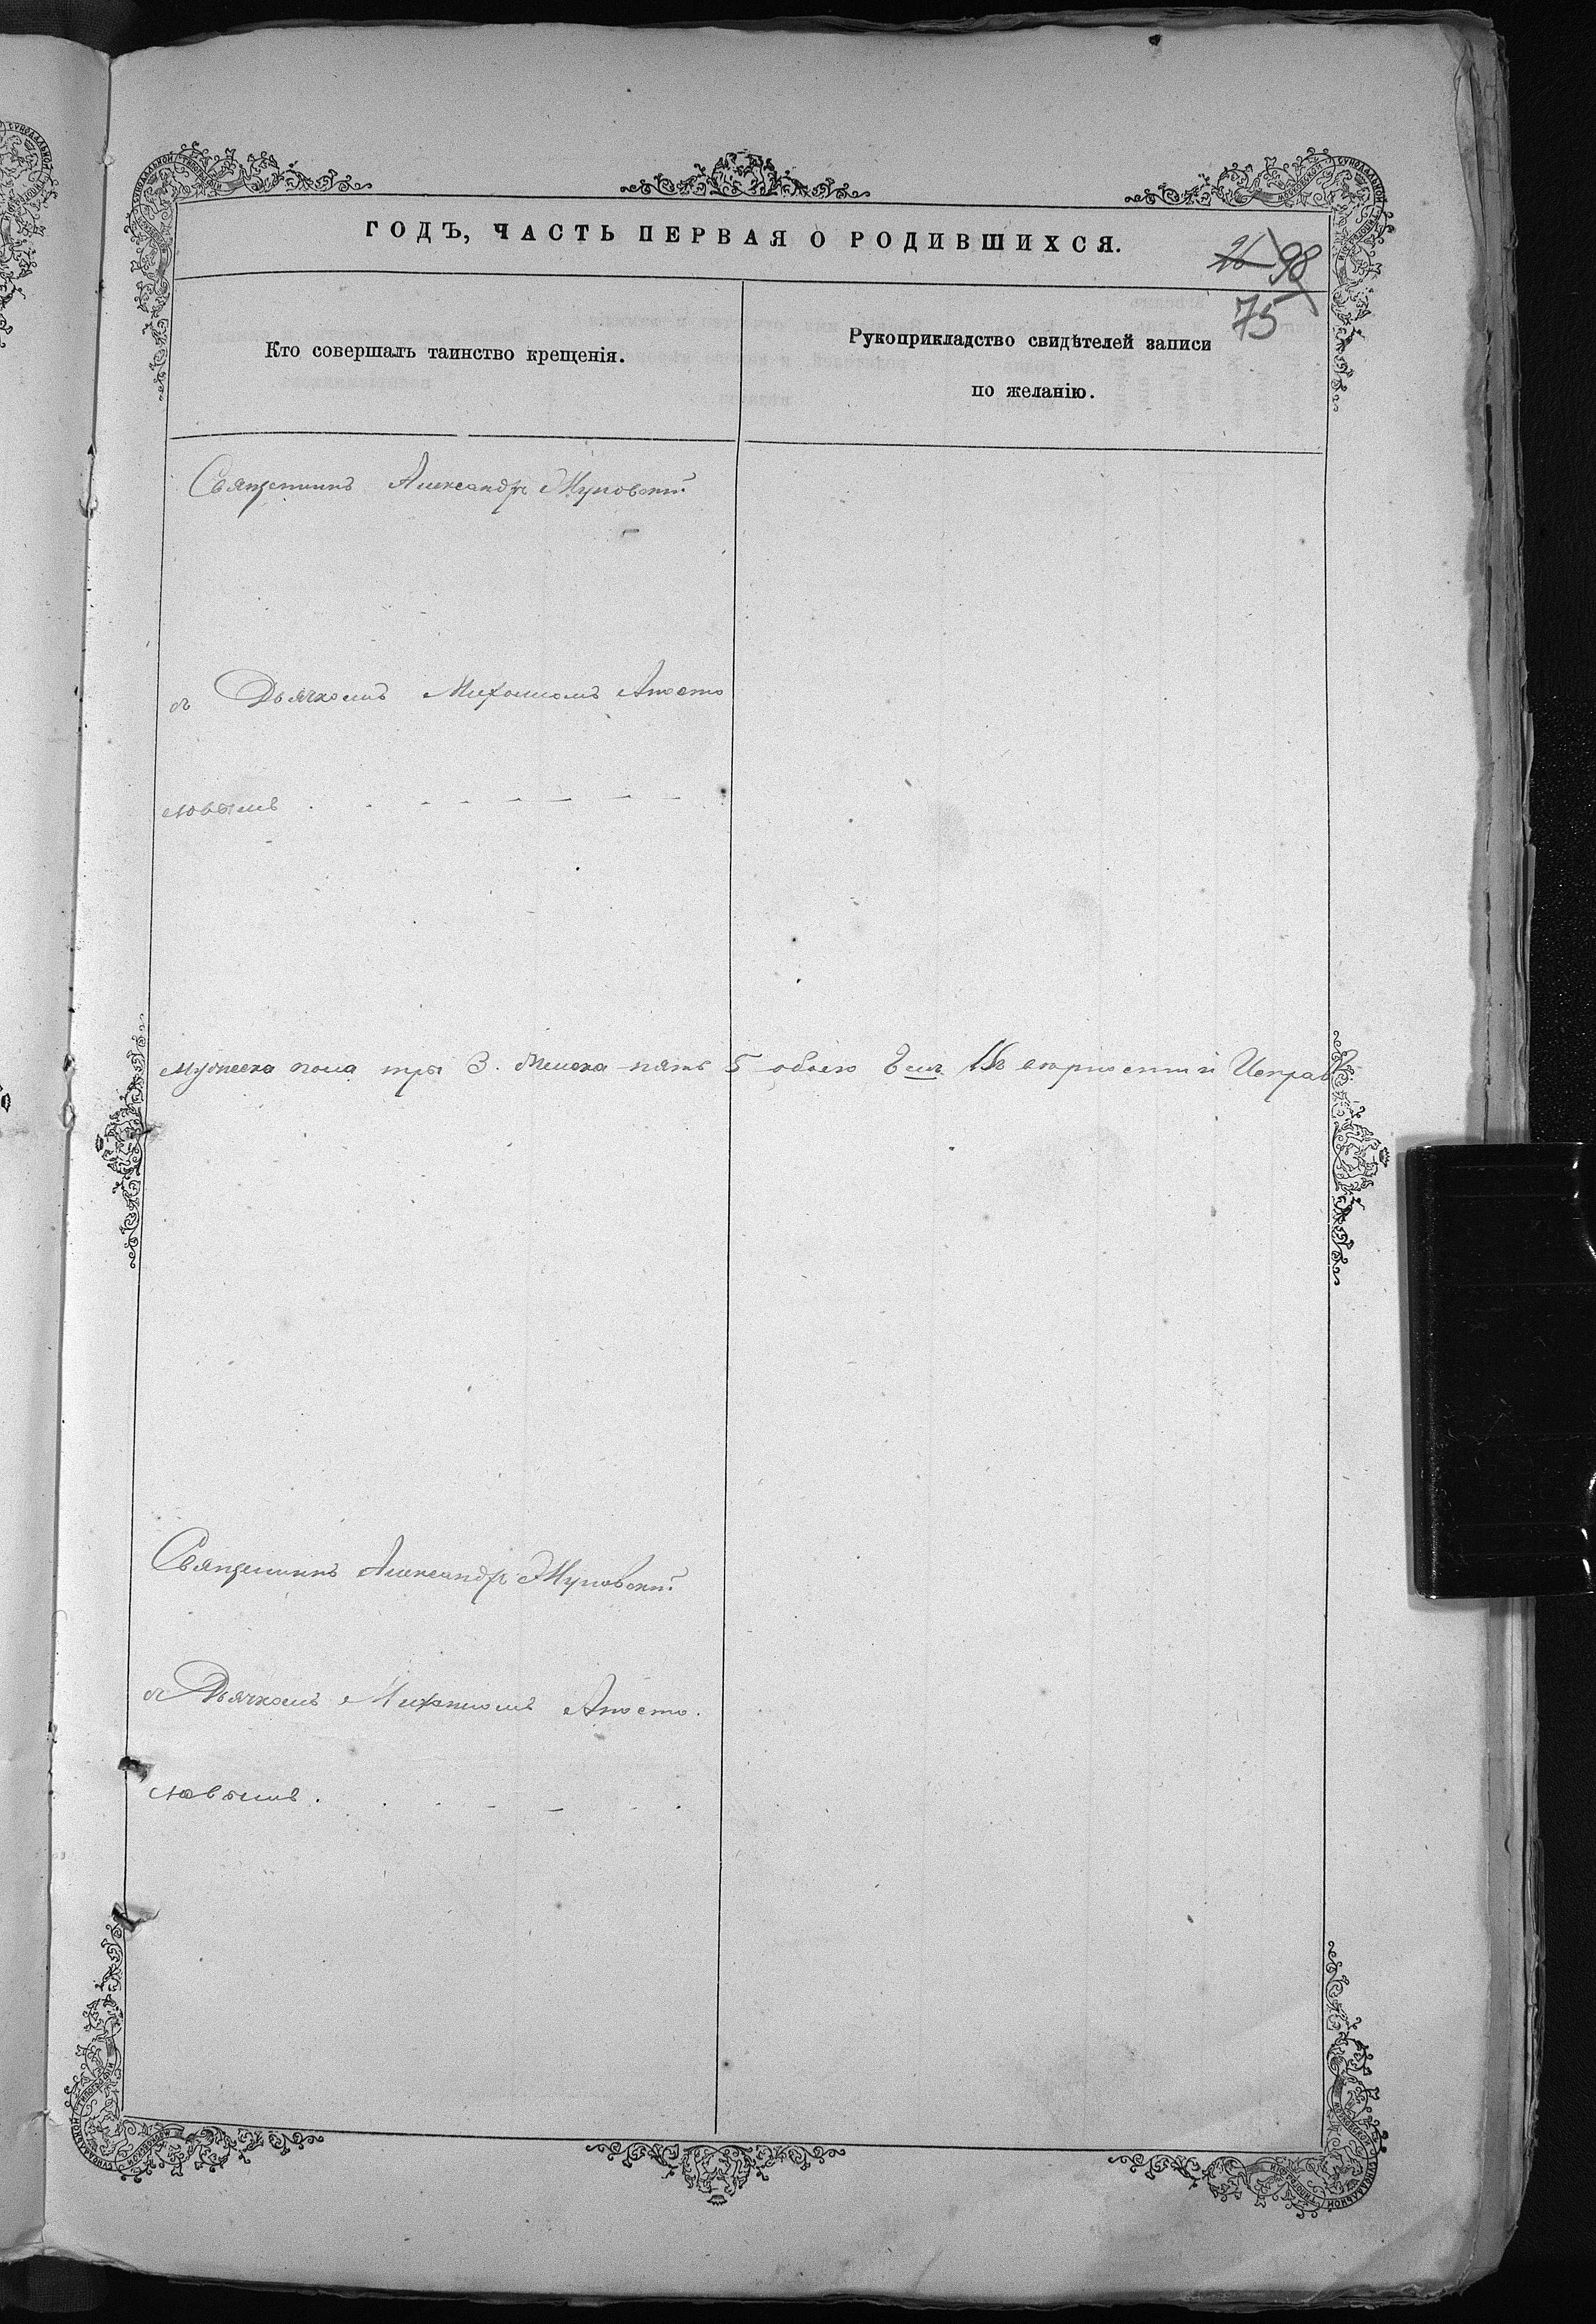 ГОДЪ, ЧАСТЬ ПЕРВАЯ О РОДИВШИХСЯ.
26 98
75
Кто совершалъ таинство крещенія.
Рукоприкладство свидѣтелей записи
по желанію.
Священникъ Александръ
съ Дьячкомъ Михаиломъ Апосто
ловымъ
мужеска пола три 3. женска пять 5 обоего
Священникъ Александръ
съ Дьячкомъ Михаиломъ Апосто.
ловымъ.